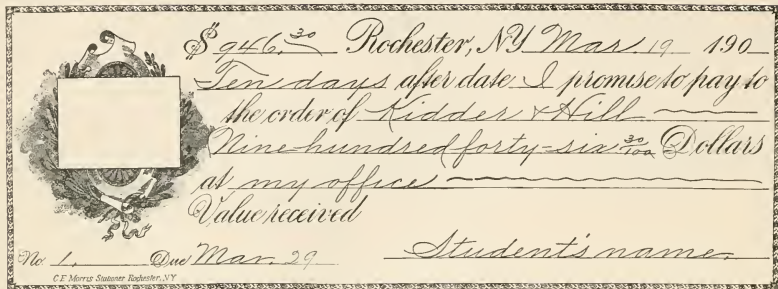 $ 946.30 Rochester, N.Y. Mar 19 190
Ten days after date I promise to pay to
the order of Kidder & Hill
Nine hundred forty-six 30/100 Dollars
at my office
Value received
No 1. Due Mar. 29 Student's name.
C.F. Morris Stationer Rochester, N.Y.